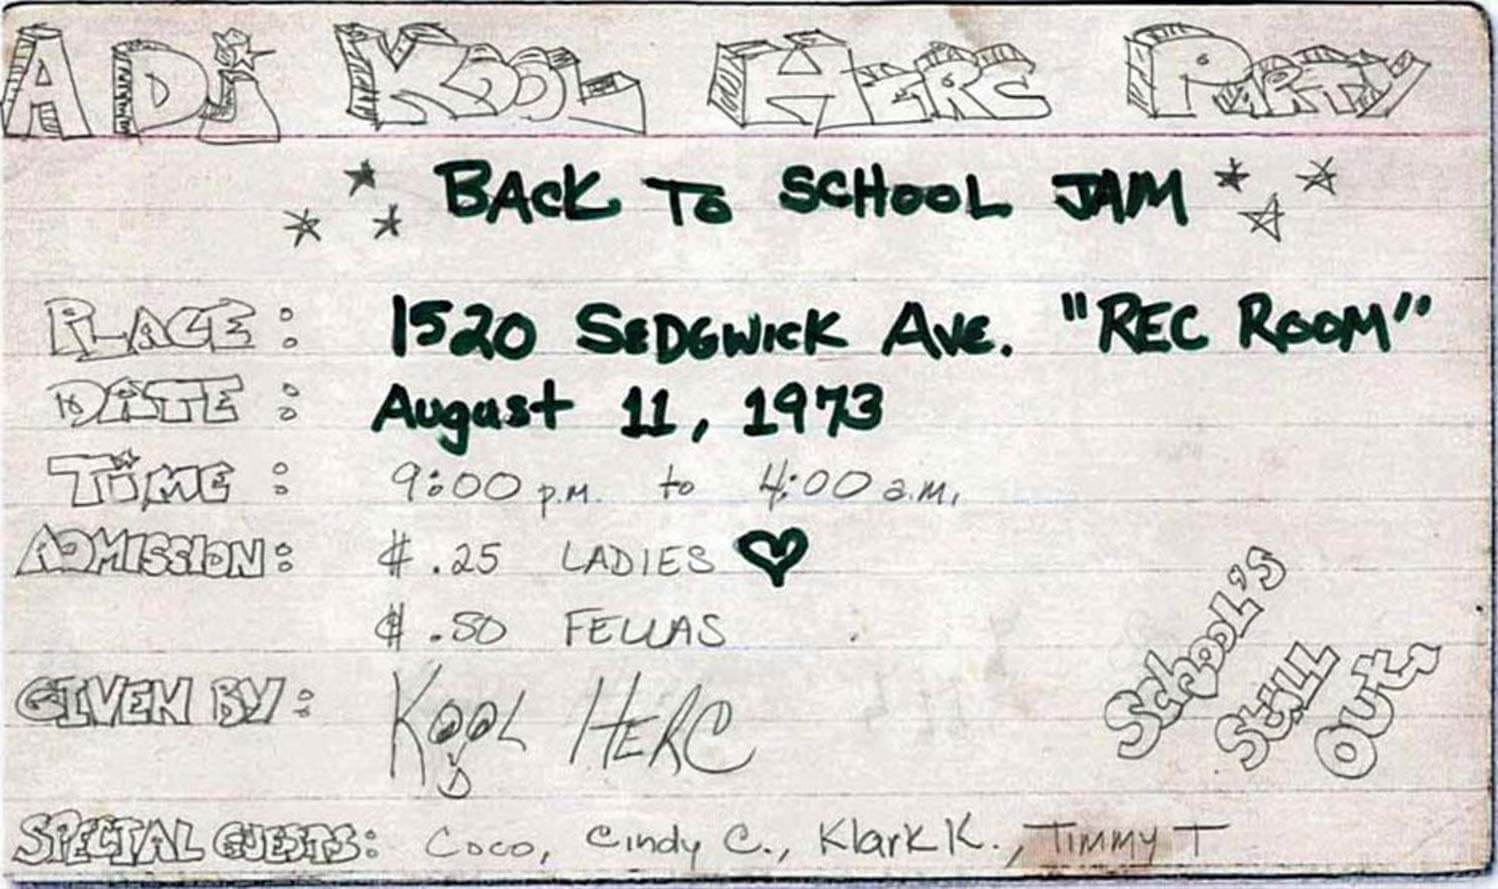 A DJ KOOL HERC PARTY
BACK TO SCHOOL JAM
PLACE: 1520 SEDGWICK AVE. "REC ROOM"
DATE: August 11, 1973
TiME: 9:00 p.m. to 4:00 a.m.
ADMISSION: $.25 LADIES ♥
$.50 FELLAS
SCHOOL'S
STiLL
OUT,
GIVEN BY: KOOL HERC
SPECIAL GUESTS: Coco, Cindy C., Klark K., Timmy T